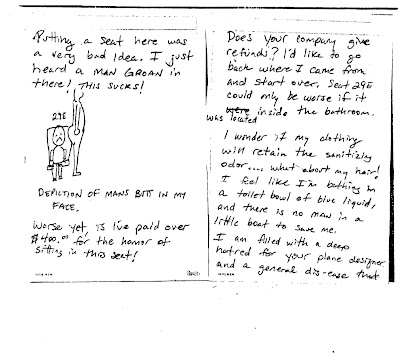 Putting a seat here was
a very bad idea. I just
heard a MAN GROAN in
there! THIS SUCKS!
29E
DEPICTION OF MANS BUTT IN MY
FACE.
Worse yet, is I've paid over
$400.00 for the honor of
sitting in this seat!
Does your company give
refunds? I'd like to go
back where I came from
and start over. Seat 29E
could only be worse if it
was located inside the bathroom.
I wonder if my clothing
will retain the sanitizing
odor.... what about my hair!
I feel like I'm bathing in
a toilet bowl of blue liquid,
and there is no man in a
little boat to save me.
I am filled with a deep
hatred for your plane designer
and a general dis-ease that